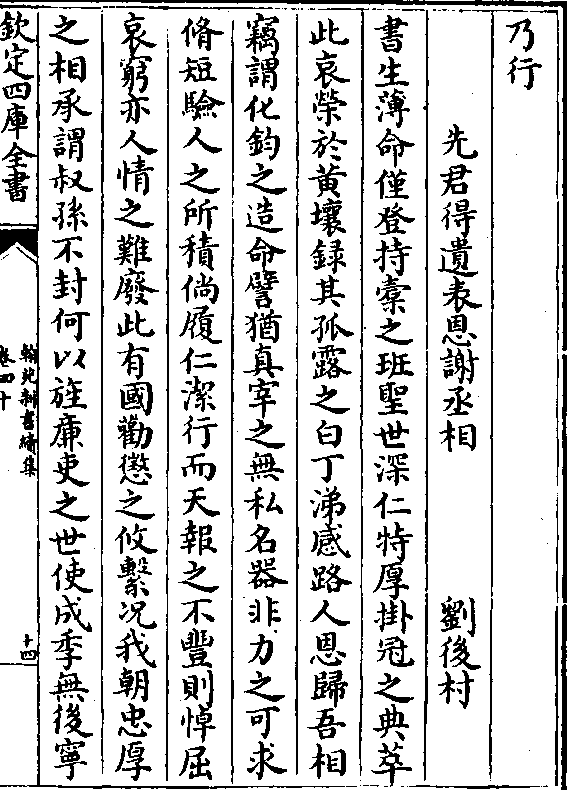 乃行
先君得遺表恩謝丞相 劉後村
書生薄命僅登持橐之班聖世深仁特厚掛冠之典萃
此哀榮於黄壤録其孤露之白丁涕感路人恩歸吾相
竊謂化鈞之造命譬猶真宰之無私名器非力之可求
脩短驗人之所積倘履仁潔行而天報之不豐則悼屈
哀窮亦人情之難廢此有國勸懲之攸繫况我朝忠厚
之相承謂叔孫不封何以旌亷吏之世使成季無後寧
欽定四庫全書
翰苑新書續集
卷四十
十四